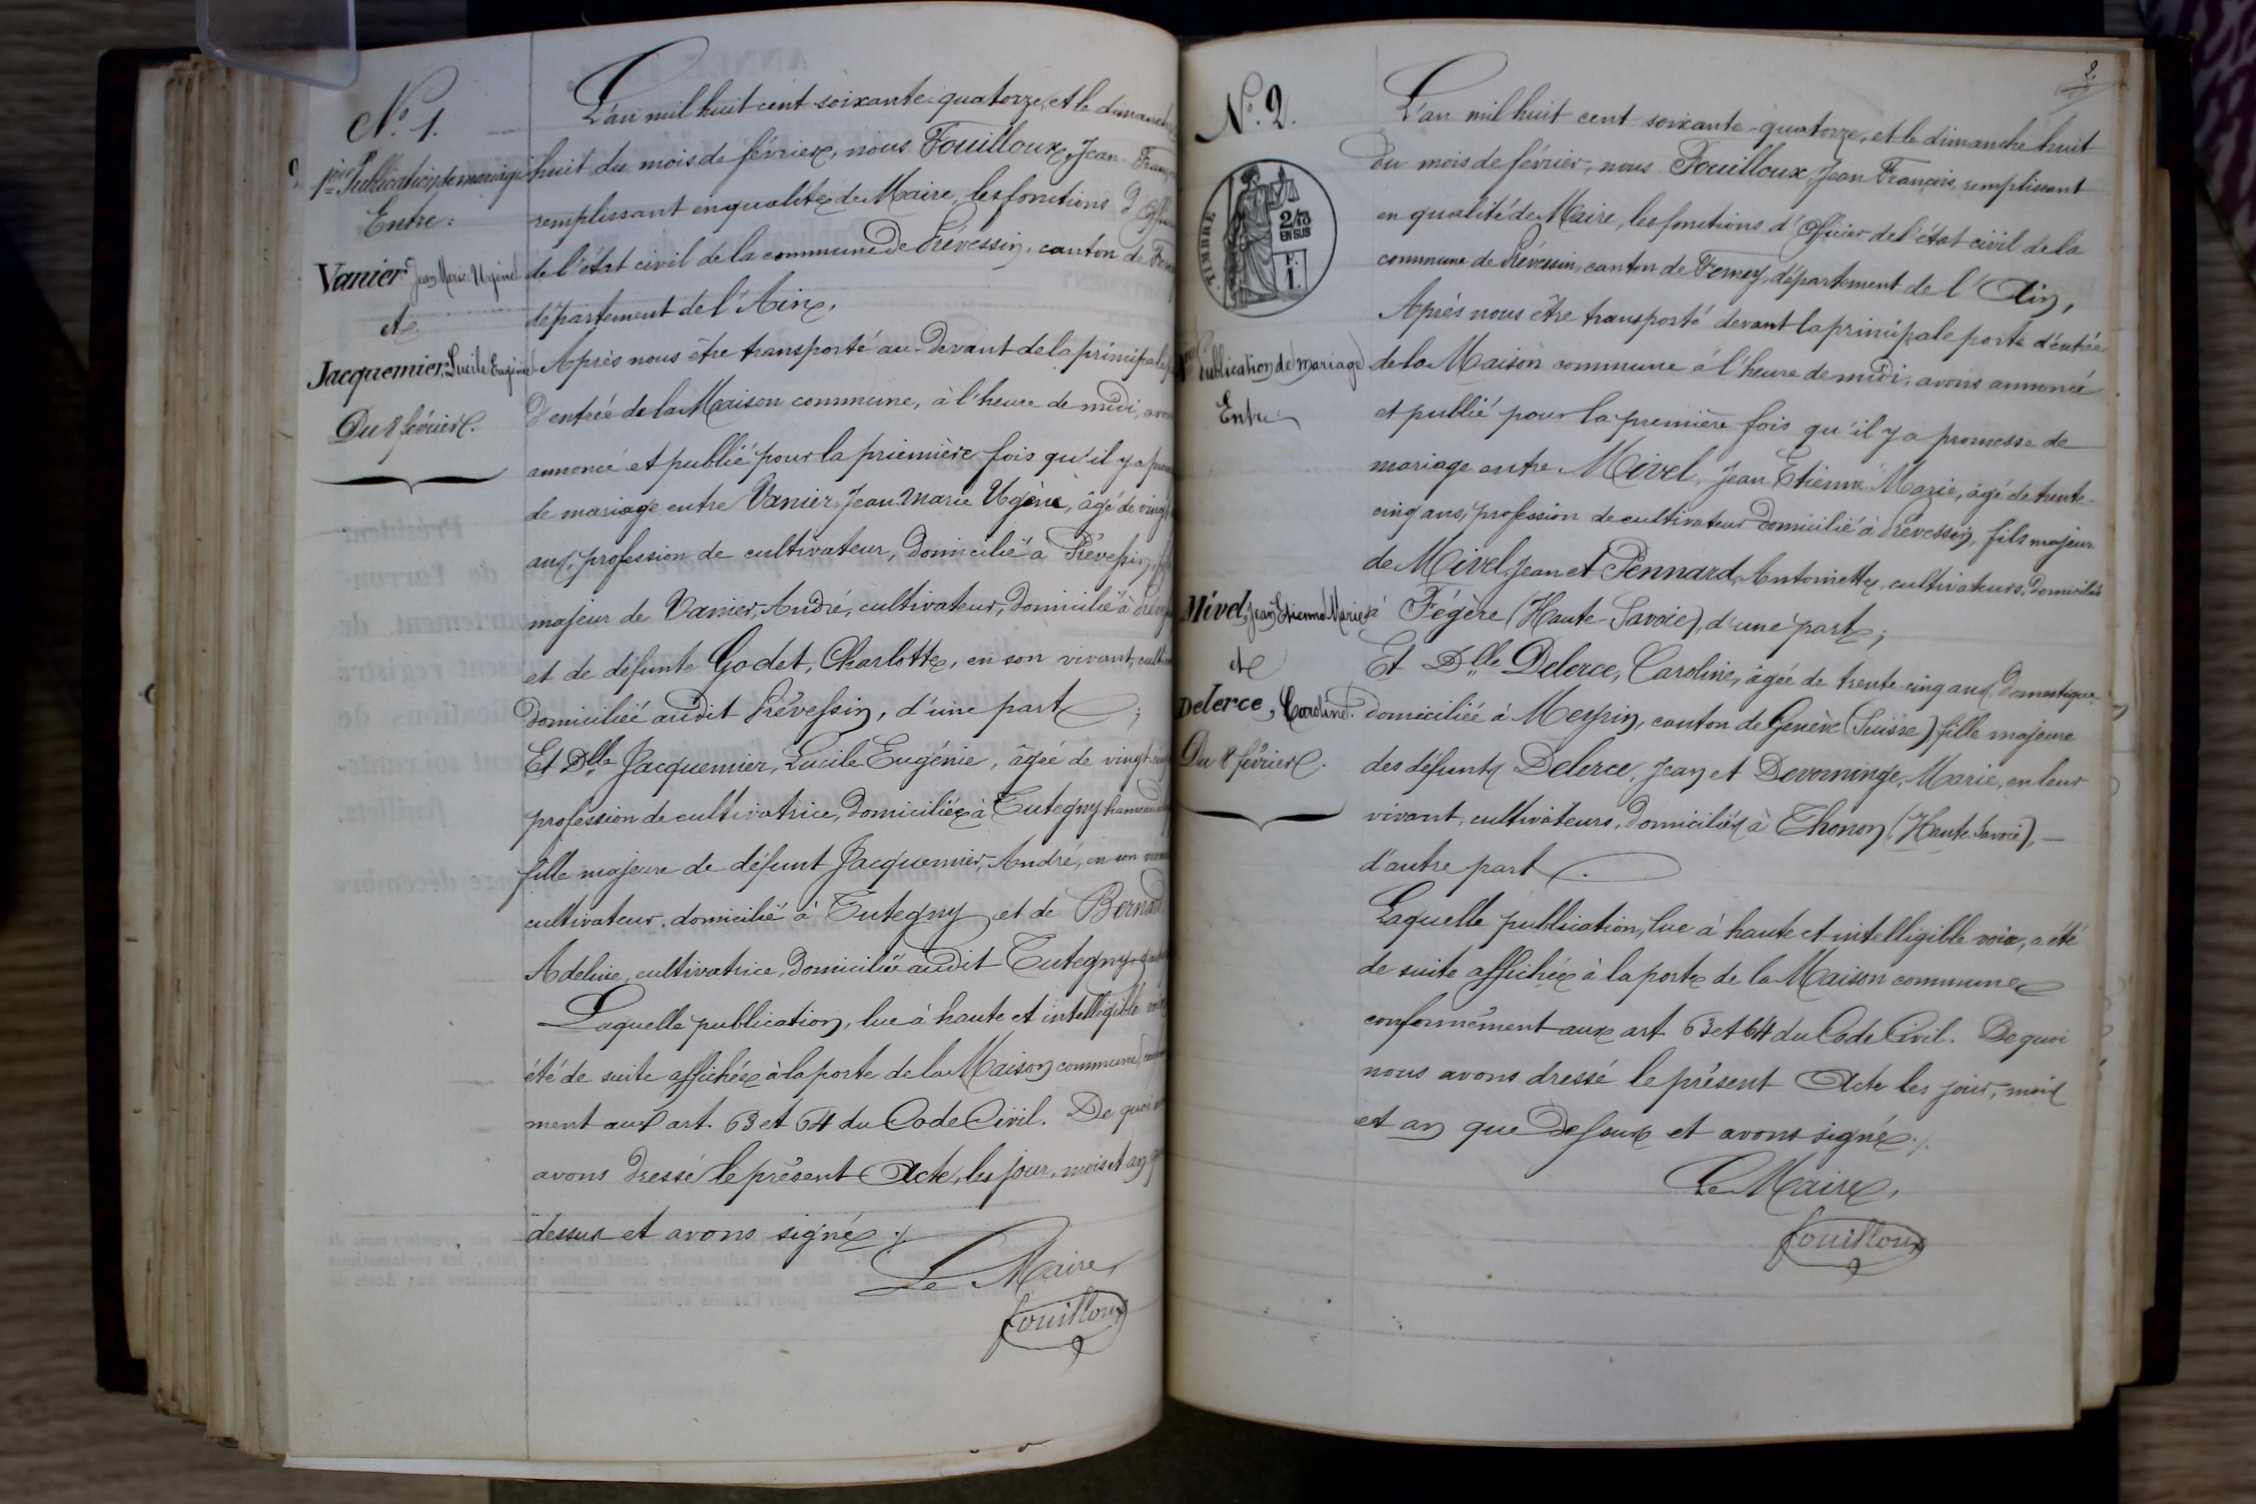 N.º 1.
1ère Publication de mariage
Entre:
Vanier Jean Marie Ugène
et
Jacquemier, Lucile Eugénie
Du 8 février.
L'an mil huit cent soixante-quatorze, et le dimanche
huit du mois de février, nous Fouilloux, Jean
remplissant en qualité de Maire, les fonctions d'
de l'état civil de la commune de Prévessin, canton de
département de l'Ain,
Après nous être transporté au-devant de la principale
d'entrée de la Maison commune, à l'heure de midi,
annoncé et publié pour la première fois qu'il y a
de mariage entre Vanier, Jean Marie Ugène, âgé de
ans, profession de cultivateur, domicilié à Prévessin,
majeur de Vanier, André, cultivateur, domicilié à
et de défunte Godet, Charlotte, en son vivant,
domiciliée audit Prévessin, d'une part;
Et Dlle Jacquemier, Lucile Eugénie, âgée de vingt
profession de cultivatrice, domiciliée à Tutegny
fille majeure de défunt Jacquemier, André, en son
cultivateur, domicilié à Tutegny et de
Adeline, cultivatrice, domiciliée audit Tutegny
Laquelle publication, lue à haute et intelligible
été de suite affichée à la porte de la Maison commune,
ment aux art. 63 et 64 du Code Civil. De quoi
avons dressé le présent Acte, les jour, mois et an
dessus et avons signé./.
Le Maire
fouilloux
2.
N.º 2.
TIMBRE
2/10
EN SUS
F.
1.
Publication de mariage
Entre
Mivel, Jean Etienne Marie
et
Delerce, Caroline.
Du 8 février.
L'an mil huit cent soixante-quatorze, et le dimanche huit
du mois de février, nous Fouilloux, Jean François, remplissant
en qualité de Maire, les fonctions d'Officier de l'état civil de la
commune de Prévessin, canton de Ferney, département de l'Ain,
Après nous être transporté devant la principale porte d'entrée
de la Maison commune à l'heure de midi, avons annoncé
et publié pour la première fois qu'il y a promesse de
mariage entre Mivel, Jean Etienne Marie, âgé de trente-
cinq ans, profession de cultivateur domicilié à Prévessin, fils majeur
de Mivel, Jean et Pennard, Antoinette, cultivateurs, domiciliés
à Fégère (Haute-Savoie), d'une part;
Et Dlle Delerce, Caroline, âgée de trente-cinq ans, domestique
domiciliée à Meyrin, canton de Genève (Suisse), fille majeure
des défunts Delerce, Jean et Marie, en leur
vivant, cultivateurs, domiciliés à Thonon, (Haute-Savoie), —
d'autre part.
Laquelle publication, lue à haute et intelligible voix, a été
de suite affichée à la porte de la Maison commune
conformément aux art 63 et 64 du Code Civil. De quoi
nous avons dressé le présent Acte les jour, mois
et an que dessus et avons signé./.
Le Maire,
fouilloux